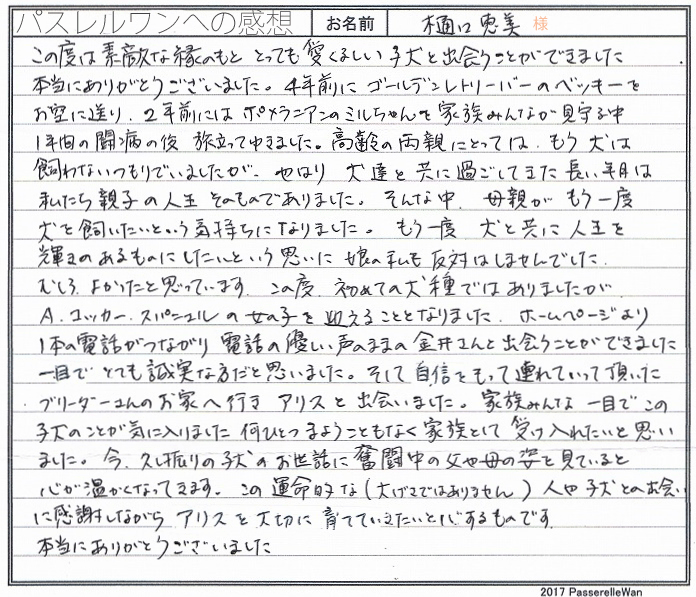 パスレルワンへの感想 お名前 樋口恵美 様
この度は素敵な縁のもと とっても愛くるしい子犬と出会うことができました
本当にありがとうございました。4年前にゴールデンレトリーバーのベッキーを
お空に送り、2年前にはポメラニアンのミルちゃんを家族みんなが見守る中
1年間の闘病の後 旅立ってゆきました。高齢の両親にとっては、もう犬は
飼わないつもりでいましたが、やはり 犬達と共に過ごしてきた長い年月は
私たち親子の人生そのものでありました。そんな中、母親がもう一度
犬を飼いたいという気持ちになりました。もう一度 犬と共に人生を
輝きのあるものにしたいという思いに娘の私も反対はしませんでした
むしろ、よかったと思っています。この度、初めての犬種ではありましたが
A.コッカー.スパニエルの女の子を迎えることとなりました。ホームページより
1本の電話がつながり 電話の優しい声のままの金井さんと出会うことができました
一目でとても誠実な方だと思いました。そして自信をもって連れていって頂いた
ブリーダーさんのお家へ行き アリスと出会いました。家族みんな一目でこの
子犬のことが気に入りました 何ひとつまようこともなく家族として受け入れたいと思い
ました。今、久し振りの子犬のお世話に奮闘中の父や母の姿を見ていると
心が温かくなってきます。この運命的な(大げさではありません)人や子犬との出会い
に感謝しながら アリスを大切に育てていきたいと心するものです
本当にありがとうございました
2017 PasserelleWan